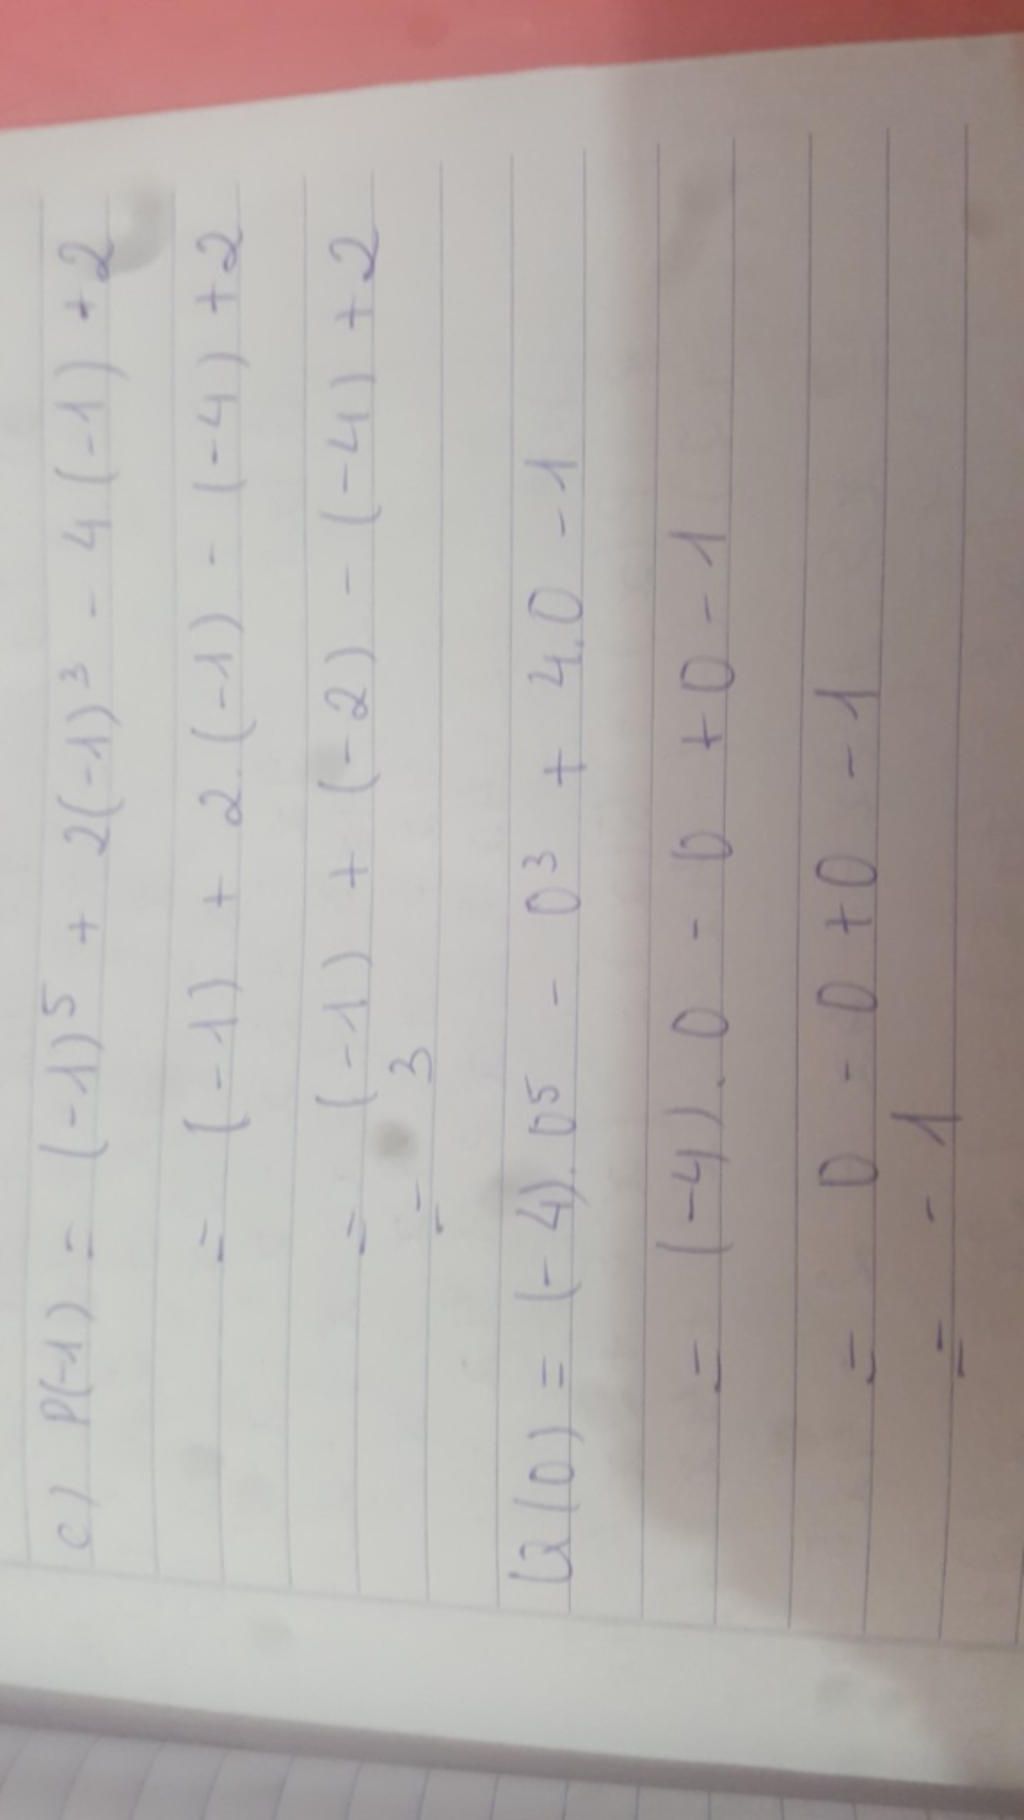 c) P(-1) = (-1)⁵ + 2(-1)³ - 4 (-1) + 2
= (-1) + 2.(-1) - (-4) + 2
= (-1) + (-2) - (-4) + 2
= 3
Q(0) = (-4).0⁵ - 0³ + 4.0 - 1
= (-4).0 - 0 + 0 - 1
= 0 - 0 + 0 - 1
= - 1